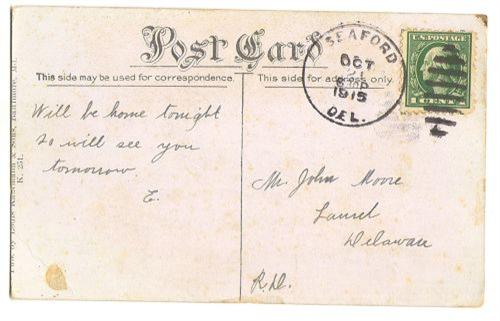 Post Card
This side may be used for correspondence.
This side for address only.
SEAFORD
OCT
1915
DEL.
U.S. POSTAGE
1 CENT 1
Will be home tonight
so will see you
tomorrow
E.
Mr. John Moore
Laurel
Delaware
R.D.
K. 251.